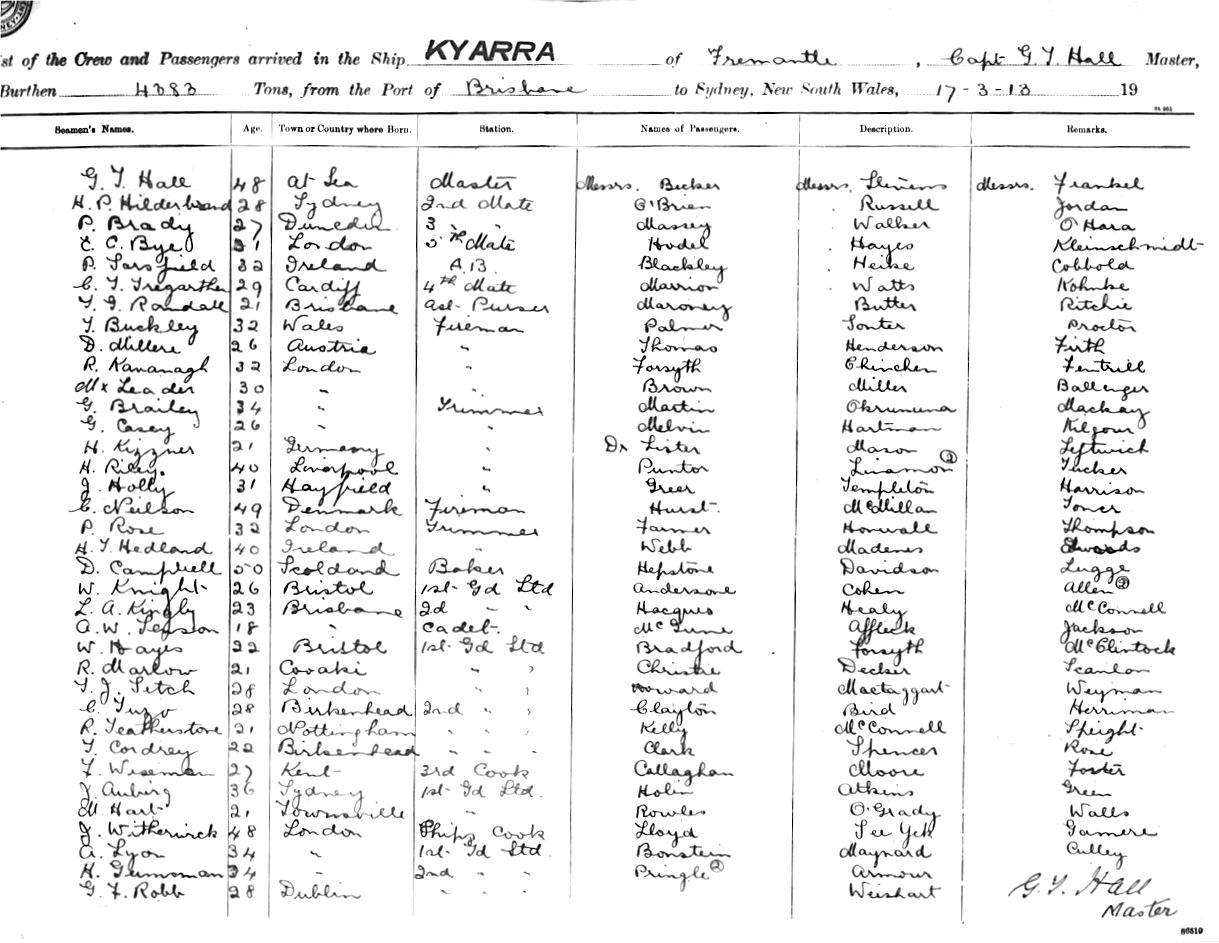 st of the Crew and Passengers arrived in the Ship KYARRA of Fremantle, Capt G. T. Hall Master,
Burthen 4383 Tons, from the Port of Brisbane to Sydney, New South Wales, 17-3-13 19
Seamen's Names. Age. Town or Country where Born. Station. Names of Passengers. Description. Remarks.
G. T. Hall 48 At Sea Master Messrs. Becker Messrs. Stevens Messrs. Frankel
H. P. Hilderbrand 28 Sydney 2nd Mate O'Brien Russell Jordan
P. Brady 27 Dunedin 3 " Massey Walker O'Hara
C. Bye London Mate Hodel Hayes Kleinschmidt
P. Sarsfield 32 Ireland A.B. Blackley Heise Cobbold
C. T. Tregarthen 29 Cardiff 4th Mate Marrion Watts Kohnke
T. G. Randall 21 Brisbane Ast. Purser Maroney Butter Ritchie
T. Buckley 32 Wales Fireman Palmer Souter Proctor
D. Millere 26 Austria " Thomas Henderson Firth
R. Kavanagh 32 London " Forsyth Chinchen Fentrill
Mx Leader 30 " " Brown Miller Ballenger
G. Brailey 34 " Trimmer Martin Mackay
G. Casey 26 " " Melvin Hartman Kilgour
H. Kizzner 21 Germany " Dr Lister Mason Leftwich
H. Riley. 40 Liverpool " Puntor Linamon (2) Tucker
J. Holly 31 Hayfield " Greer Templeton Harrison
C. Neilson 49 Denmark Fireman Hurst McMillan Toner
P. Rose 32 London Trimmer Farmer Honwall Thompson
H. T. Hedland 40 Ireland " Webb Madenes Edwards
D. Campbell 50 Scotland Baker Hepstone Davidson Lugge
W. Knight 26 Bristol 1st Gd Std Andersone Cohen Allen (2)
L. A. Kingly 23 Brisbane 2d " " Hacques Healy McConnell
A. W. Pearson 18 " Cadet McGune Affleck Jackson
W. Hayes 22 Bristol 1st Gd Std Bradford Forsyth McClintock
R. Marlow 21 Covaki " " Christie Decker Scanlon
T. J. Fetch 28 London " " Howard Mactaggart Weyman
C. Tuzo 28 Birkenhead 2nd " " Clayton Bird Herriman
R. Featherstone 21 Nottingham " " " Kelly McConnell Speight
T. Cordrey 22 Birkenhead " " " Clark Spencer Rose
F. Wiseman 27 Kent 3rd Cook Callaghan Moore Foster
J. Aubing 36 Sydney 1st Gd Std. Holin Atkins Green
M. Hart 21 Townsville " " " Rowles O'Grady Walls
J. Witherwick 48 London Ships Cook Lloyd See Yek Gamere
A. Lyon 34 " 1st Gd Std. Bonstein Maynard Culley
H. Gunsman 34 " 2nd " " Pringle (2) Armour
G. F. Robb 28 Dublin " " " Weishart
G. T. Hall
Master
86519